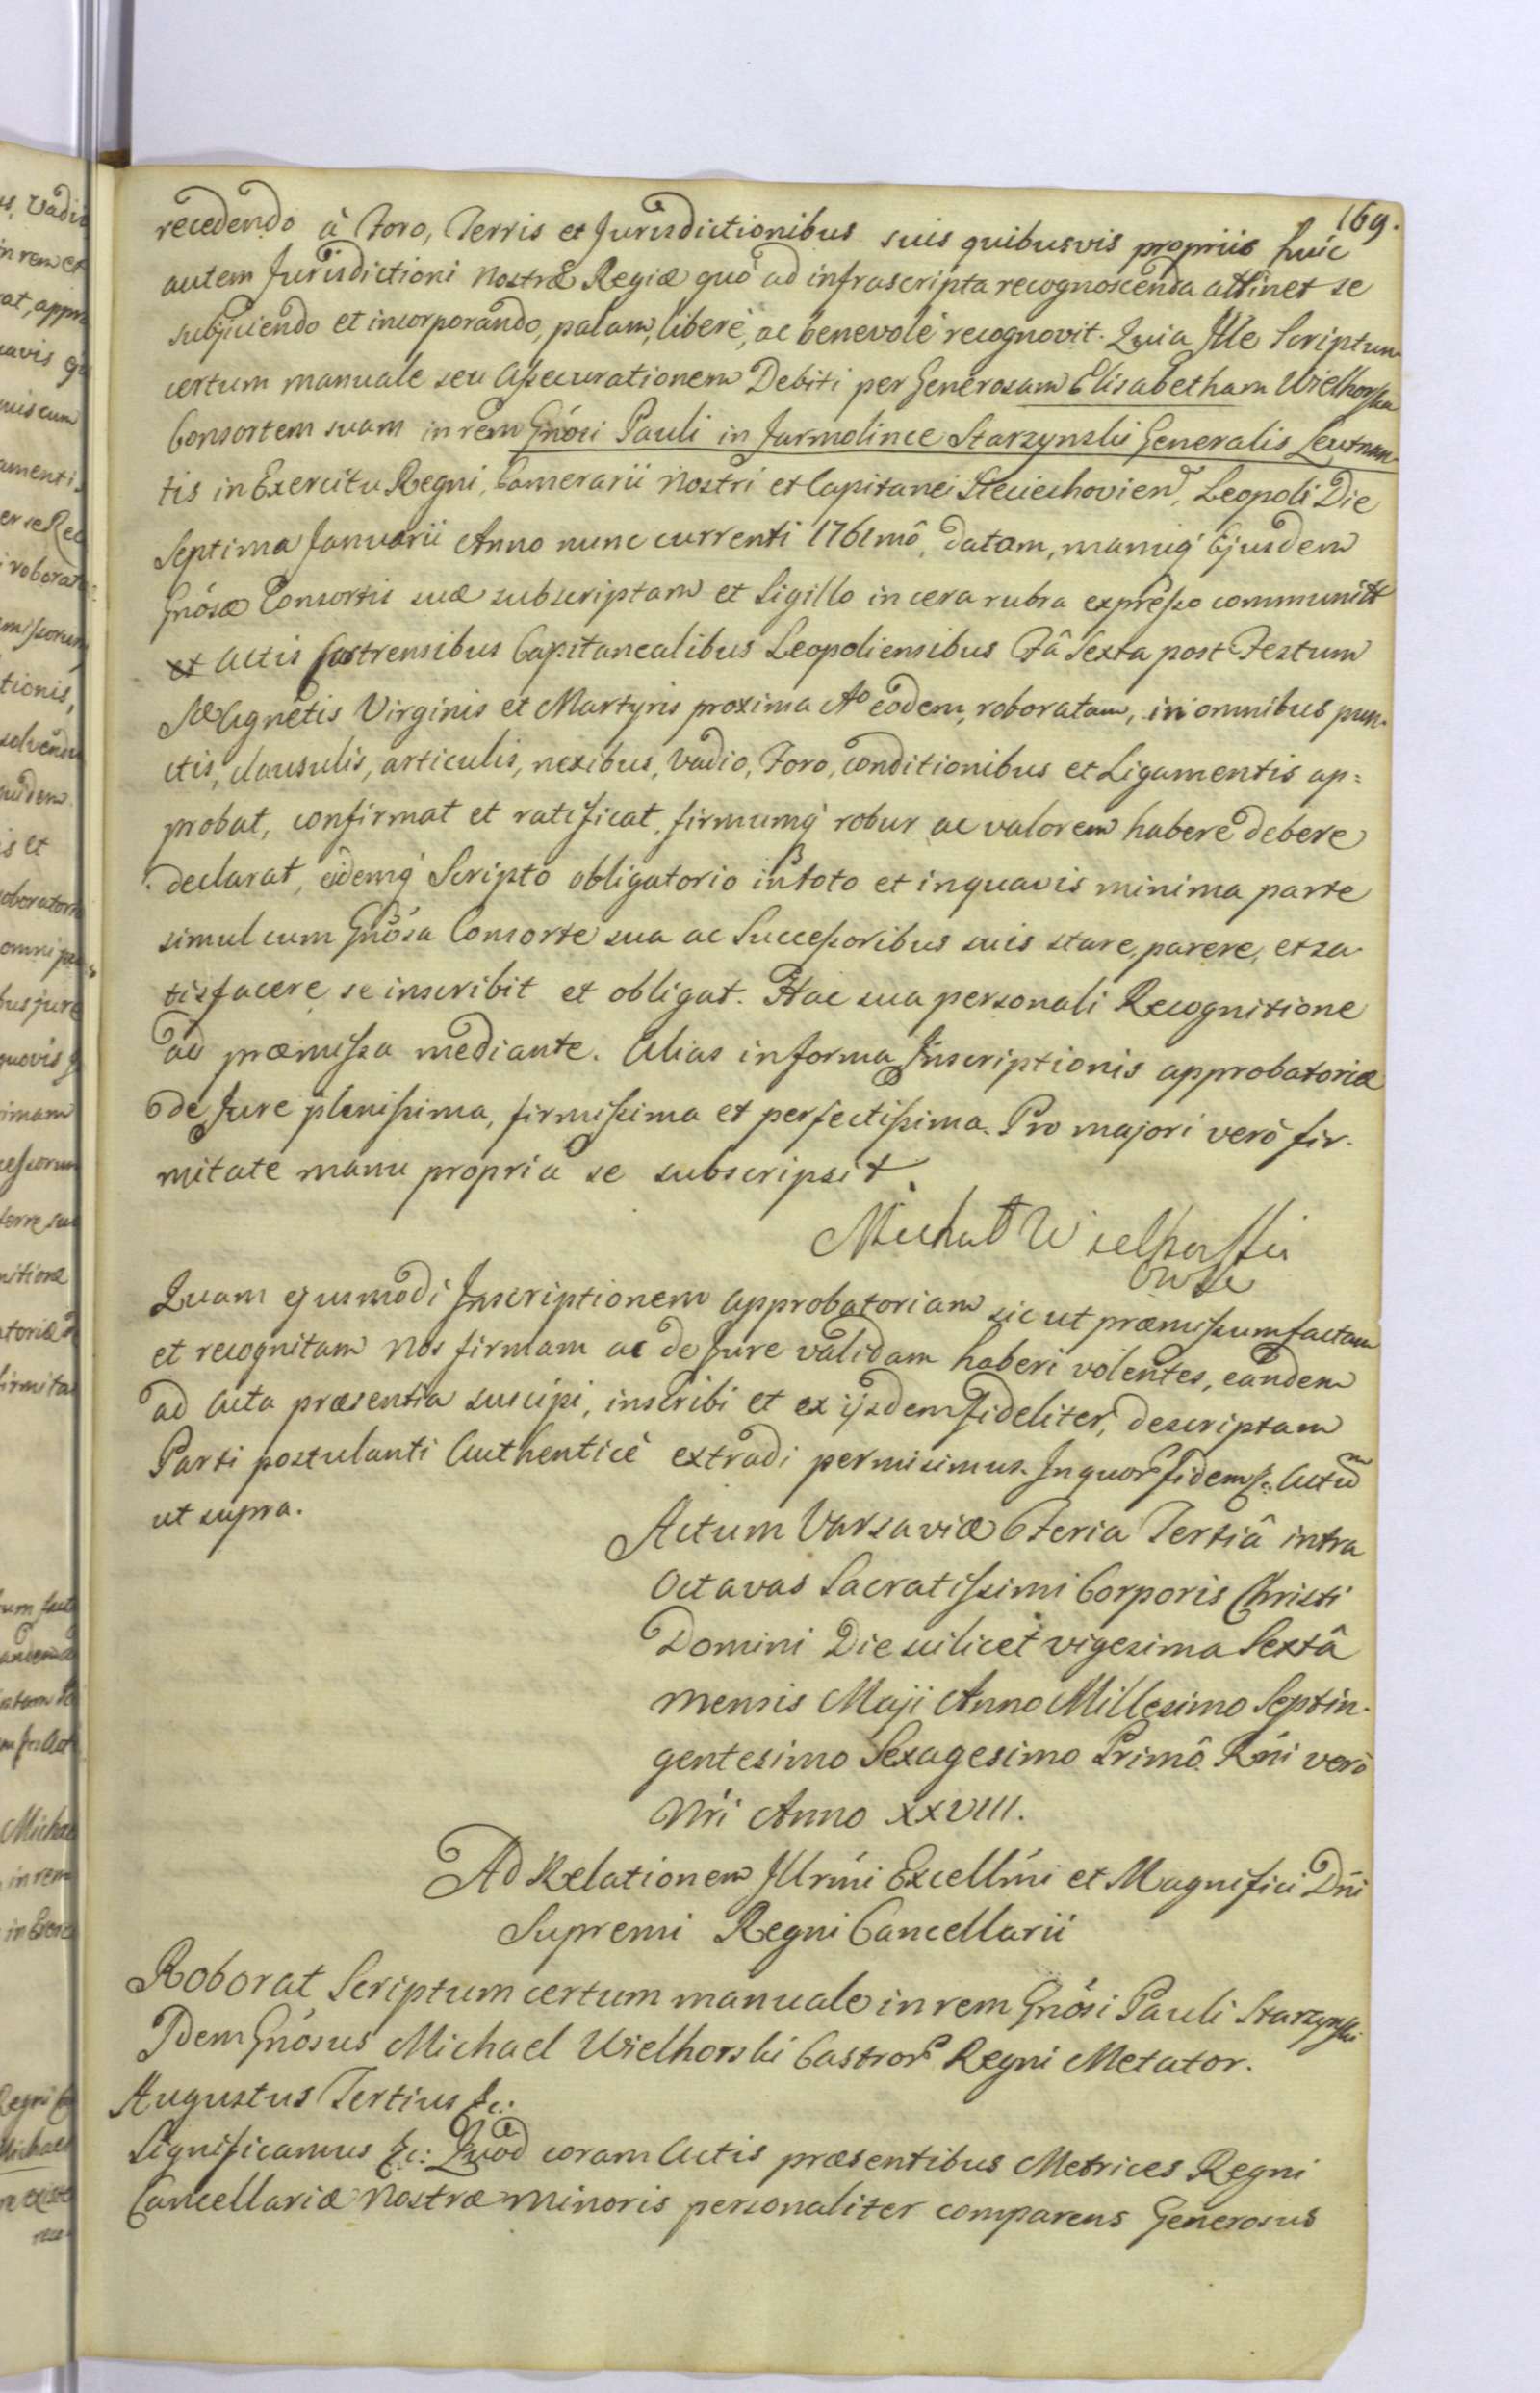 169.
recedendo à Foro, Terris et Jurisdictionibus suis quibusvis propriis huic
autem Jurisdictioni Nostræ Regiæ quò ad infrascripta recognoscenda attinet se
subjiciendo et incorporando, palam, liberè, ac benevolè recognovit. Quia Ille Scriptum
certum manuale seu Assecurationem Debiti per Generosam Elisabetham Wielhorska
Consortem suam in rem Gnósi Pauli in Jarmolince Starzynski Generalis Leutnan-
tis in Exercitu Regni, Camerarii Nostri et Capitanei Steciechovien, Leopoli Die
Septima Januarii Anno nunc currenti 1761mô, datam, manuq Ejusdem
Gnósæ Consortis suæ subscriptam et Sigillo in cera rubra expresso communitt
et Actis Castrensibus Capitanealibus Leopoliensibus Fâ Sexta post Festum
Sæ Agnetis Virginis et Martyris proxima Aº eodem, roboratam, in omnibus pun-
ctis, clausulis, articulis, nexibus, Vadio, Foro, conditionibus et Ligamentis ap=
probat, confirmat et ratificat, firmumq robur ac valorem habere debere
declarat, eidemq Scripto obligatorio in toto et in quavis minima parte
simul cum Gnósa Consorte sua ac Successoribus suis stare, parere, et sa-
tisfacere se inscribit et obligat. Hac sua personali Recognitione
ad præmissa mediante. Alias in forma Inscriptionis approbatoriæ
de Jure plenissima, firmissima et perfectissima. Pro majori verò fir-
mitate manu propria se subscripsit.
Michał Wielhorski
Quam ejusmodi Inscriptionem approbatoriam sic ut præmissum factam
et recognitam Nos firmam ac de Jure validam haberi volentes, eandem
ad Acta præsentia suscipi, inscribi et ex ijsdem fideliter, descriptam
Parti postulanti Authenticè extradi permisimus. In quor fidem &c: Actum
ut supra.
Actum Varsaviæ Feria Tertiâ intra
Octavas Sacratissimi Corporis Christi
Domini Die scilicet vigesima Sextâ
mensis Maji Anno Millesimo Septin-
gentesimo Sexagesimo Primô. Rńi verò
Nri Anno XXVIII.
Ad Relationem Illrmi Excellmi et Magnifici Dńi
Supremi Regni Cancellarii
Roborat Scriptum certum manuale in rem Gnósi Pauli Starzynski
Idem Gnósus Michael Wielhorski Castror Regni Metator.
Augustus Tertius &c:
Significamus &c: Quod coram Actis præsentibus Metrices Regni
Cancellariæ Nostræ Minoris personaliter comparens Generosus